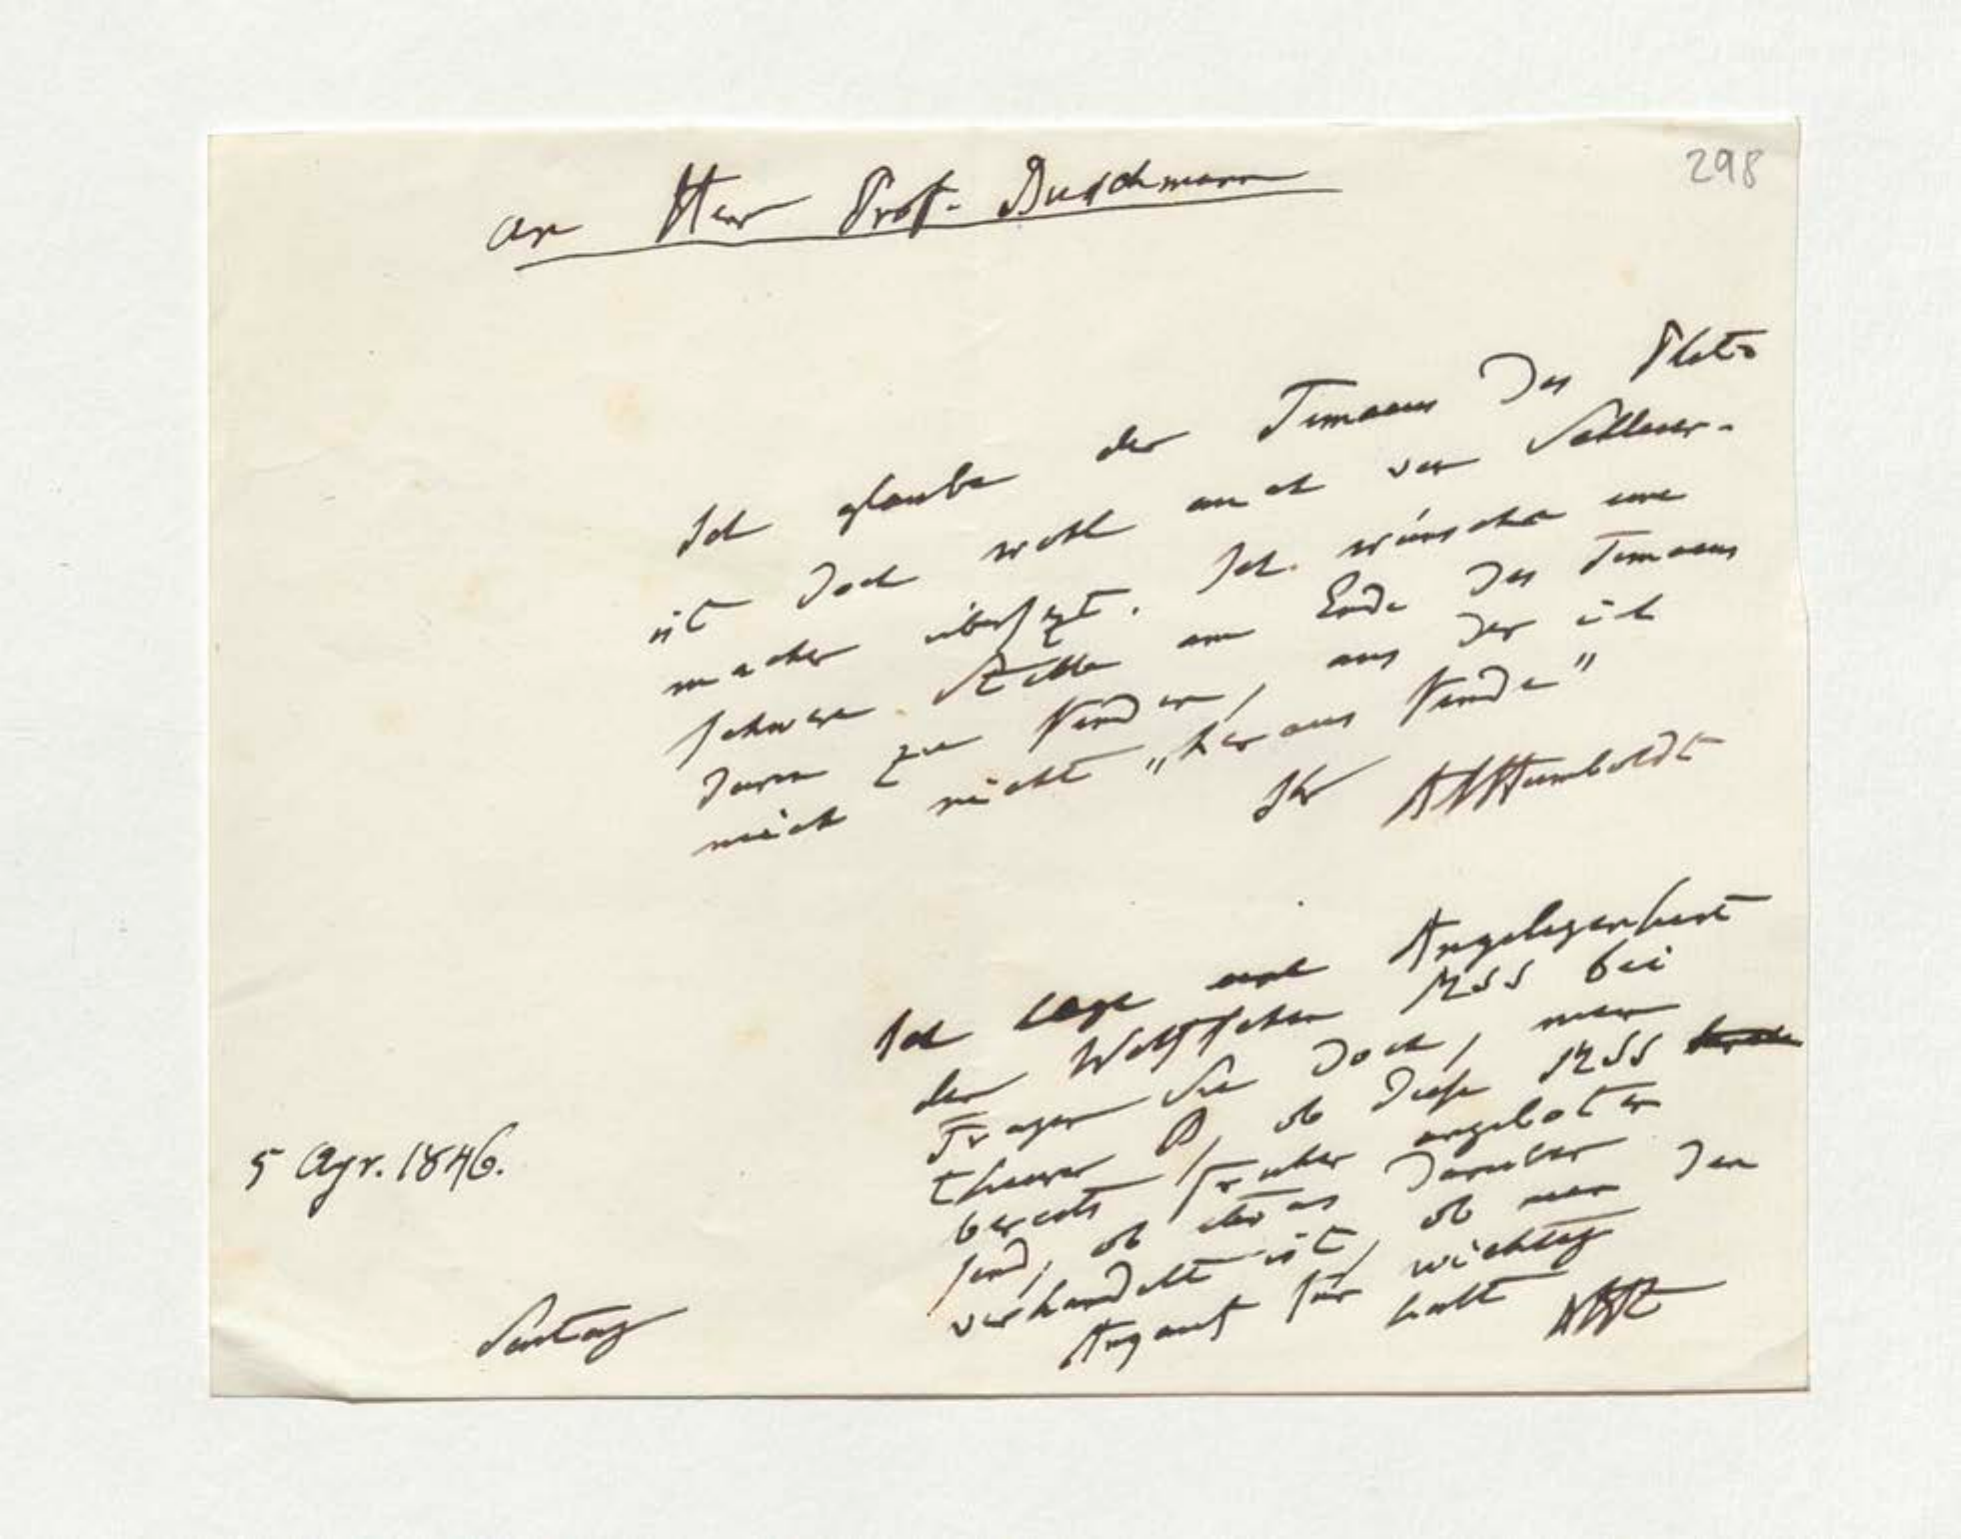 298
an Herr Prof. Buschmann
Ich glaube der Timaeus des Plato
ist doch wohl auch von Schleier-
macher übersezt. Ich wünschte eine
schwere Stelle am Ende des Timaeus
darin zu finden, aus der ich
mich nicht „heraus finde"
Ihr AvHumboldt
Ich lege Angelegenheit
der Wolfschen MSS bei
Fragen Sie doch, mein
theurer B, ob diese MSS
bereits früher angeboten
sind, ob etwas darüber
verhandelt ist, ob man den
Ankauf für wichtig
halt AvHt
5 Apr. 1846.
Sontag